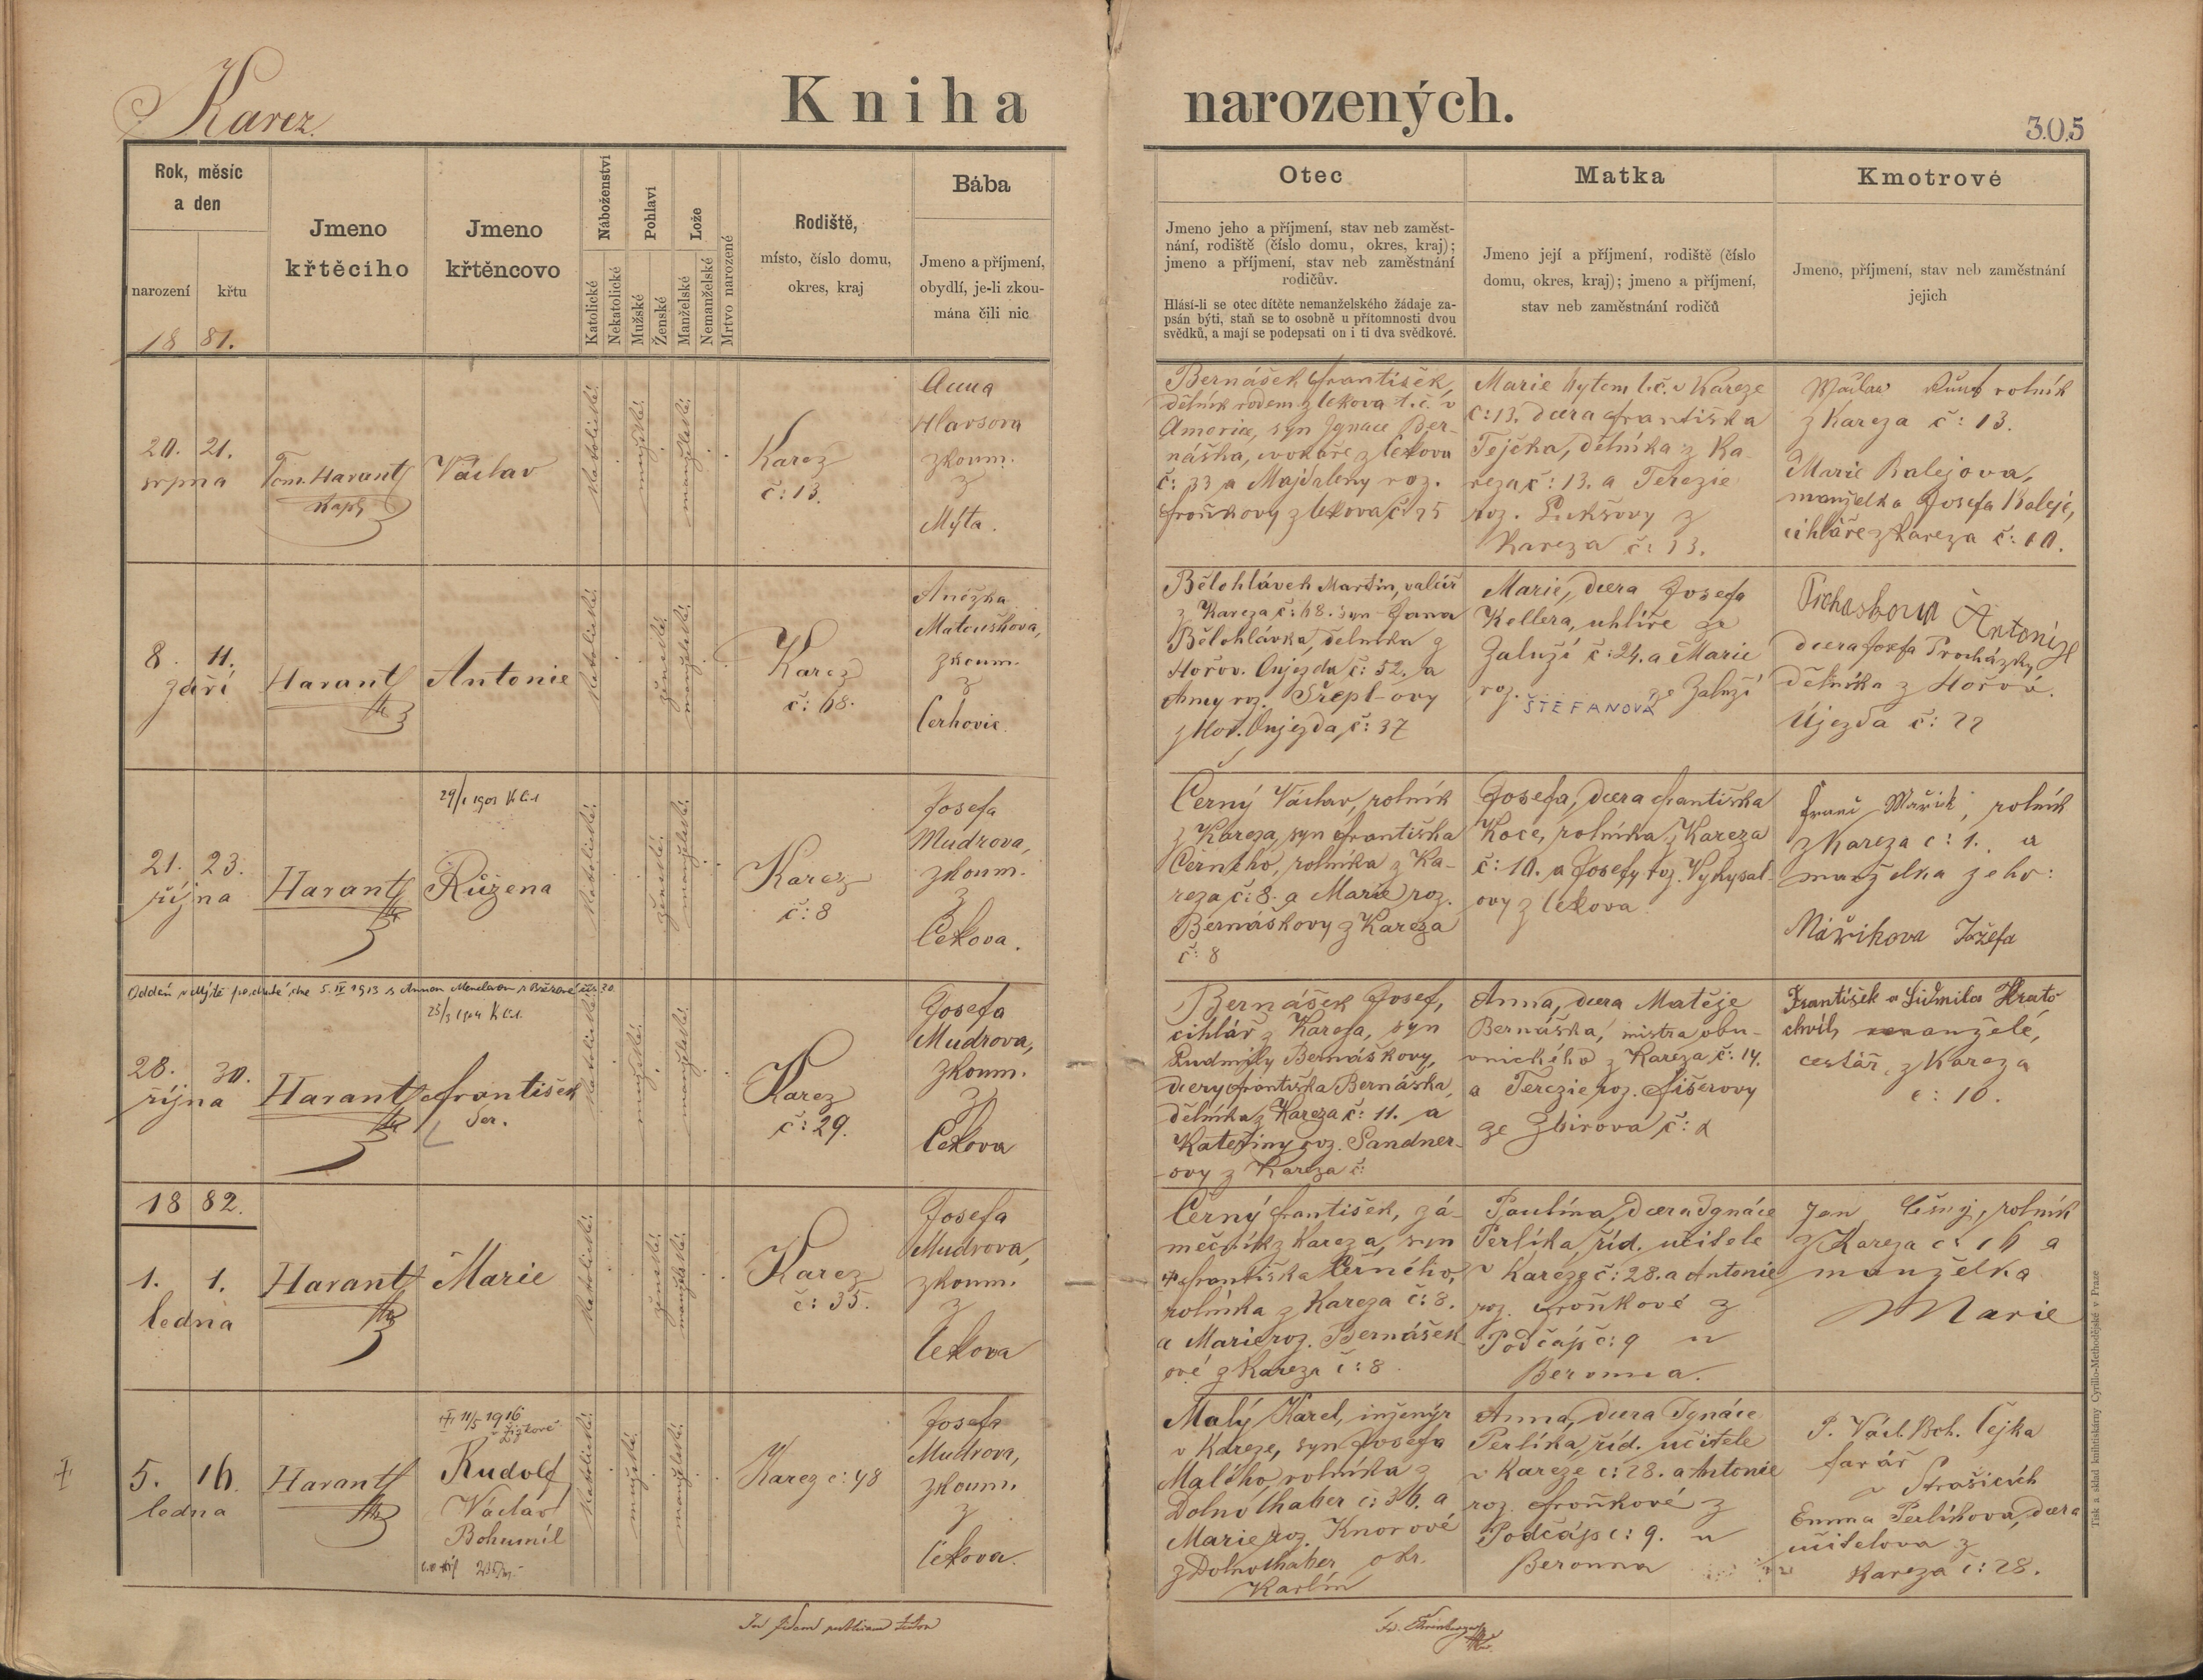 Karez.
Kniha narozených.
305
Rok, měsíc
a den
narození
křtu
18 81.
Jmeno
křtěcího
Jmeno
křtěncovo
Náboženství
Katolické
Nekatolické
Pohlaví
Mužské
Ženské
Lože
Manželské
Nemanželské
Mrtvo narozené
Rodiště,
místo, číslo domu,
okres, kraj
Bába
Jmeno a příjmení,
obydlí, je-li zkou-
mána čili nic
Otec
Jmeno jeho a příjmení, stav neb zaměst-
nání, rodiště (číslo domu, okres, kraj);
jmeno a příjmení, stav neb zaměstnání
rodičův.
Hlásí-li se otec dítěte nemanželského žádaje za-
psán býti, staň se to osobně u přítomnosti dvou
svědků, a mají se podepsati on i ti dva svědkové.
Matka
Jmeno její a příjmení, rodiště (číslo
domu, okres, kraj); jmeno a příjmení,
stav neb zaměstnání rodičů
Kmotrové
Jmeno, příjmení, stav neb zaměstnání
jejich
20. 21.
srpna
Tom. Harant
kapl.
Václav
katolické.
mužské.
manželské.
Karez
č: 13.
Anna
Hlavsova
zkoum.
z
Mýta.
Bernášek František,
dělník rodem z Cekova t. č. v
Americe, syn Ignace Ber-
náška, cvokaře z Cekova
č: 33 a Majdaleny roz.
Froňkovy z Cekova č: 25
Marie bytem t. č. v Kareze
č: 13. dcera Františka
Tejčka, dělníka z Ka-
reza č: 13. a Terezie
roz. Lukšovy z
Kareza č: 13.
Václav rolník
z Kareza č: 13.
Marie Kalejova,
manželka Josefa Kaleje,
cihláře z Kareza č: 10.
8. 11.
září
Harant
Antonie
katolické.
ženské.
manželské.
Karez
č: 68.
Anežka
Matoušková,
zkoum.
z
Cerhovic.
Bělohlávek Martin, valcíř
z Kareza č: 68. syn Jana
Bělohlávka, dělníka z
Hořov. Oujezda č: 52. a
Anny roz. Střepl-ovy
z Hoř. Oujezda č: 37
Marie, dcera Josefa
Kellera, uhlíře ze
Zaluží č: 24. a Marie
roz. ŠTEFANOVÁ ze Zaluží
Prochaskova Antonie
dcera Josefa Procházky
dělníka z Hořov.
Újezda č: 22
29/1 1903
21. 23.
října
Harant
Růžena
katolické.
ženské.
manželské.
Karez
č: 8
Josefa
Mudrova,
zkoum.
z
Cekova.
Černý Václav, rolník
z Kareza, syn Františka
Černého, rolníka z Ka-
reza č: 8. a Marie roz.
Bernáškovy z Kareza
č: 8
Josefa, dcera Františka
Koce, rolníka z Kareza
č: 10. a Josefy roz. Vykysal-
ovy z Cekova
Franc Mařík, rolník
z Kareza č: 1. a
manželka jeho:
Maříkova Jožefa
Oddán v Mýtě dne 5. IV 1913 s Annou
28. 30.
října
Harant
František
Ser.
katolické.
mužské.
manželské.
Karez
č: 29.
Josefa
Mudrova,
zkoum.
z
Cekova
Bernášek Josef,
cihlář z Kareza, syn
Ludmily Bernáškovy,
dcery Františka Bernáska,
dělníka z Kareza č: 11. a
Kateřiny roz. Sandner-
ovy z Kareza č:
Anna, dcera Matěje
Bernáška, mistra obu-
vnického z Kareza č: 14.
a Terezie roz. Fišerovy
ze Zbirova č: 2
František a Lidmila Krato
chvíl, manželé,
cestář z Kareza
č: 10.
18 82.
1. 1.
ledna
Harant
Marie
katolické.
ženské.
manželské.
Karez
č: 35.
Josefa
Mudrova,
zkoum.
z
Cekova
Černý František, zá-
mečník z Kareza, syn
Františka Černého,
rolníka z Kareza č: 8.
a Marie roz. Bernášek-
ové z Kareza č: 8.
Paulína, dcera Ignáce
Perlíka, říd. učitele
v Kareze č: 28. a Antonie
roz. Froňkové z
Podčáp č: 9 u
Berouna.
Jan rolník
z Kareza č: 16 a
manželka
Marie
11/5 1916
v Žižkově
5. 16.
ledna
Harant
Rudolf
Václav
Bohumil
katolické.
mužské.
manželské.
Karez č: 48
Josefa
Mudrova,
zkoum.
z
Cekova.
Malý Karel, inženýr
v Kareze, syn Josefa
Malého, rolníka z
Dolno Chaber č: 36. a
Marie roz. Knorové
z Dolnochaber okr.
Karlín
Anna, dcera Ignáce
Perlíka, říd. učitele
v Kareze č: 28. a Antonie
roz. Froňkové z
Podčáp č: 9. u
Berouna
P. Václ. Boh. Čejka
farář
v Strašicích
Emma Perlíkova, dcera
učitelova z
Kareza č: 28.
Tisk a sklad knihtiskárny Cyrillo-Methodějské v Praze